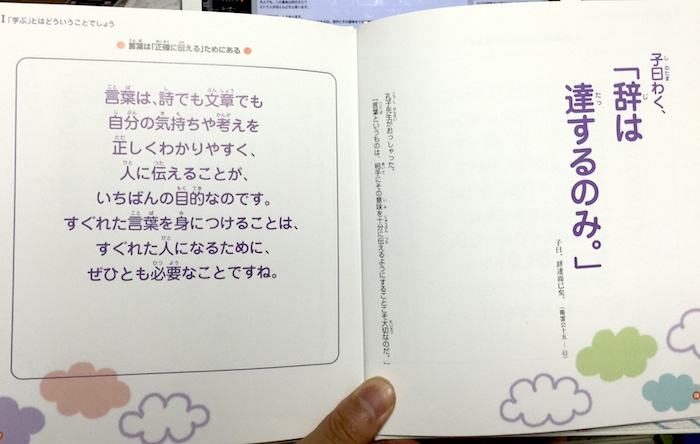 Ⅰ「学ぶ」とはどういうことでしょう
言葉は「正確に伝える」ためにある
言葉は、詩でも文章でも
自分の気持ちや考えを
正しくわかりやすく、
人に伝えることが、
いちばんの目的なのです。
すぐれた言葉を身につけることは、
すぐれた人になるために、
ぜひとも必要なことですね。
子曰わく、
「辞は
達するのみ。」
子曰、辞達而已矣。
孔子先生がおっしゃった。
「言葉というものは、相手にその意味を十分に伝えるようにすることこそ大切なのだ。」